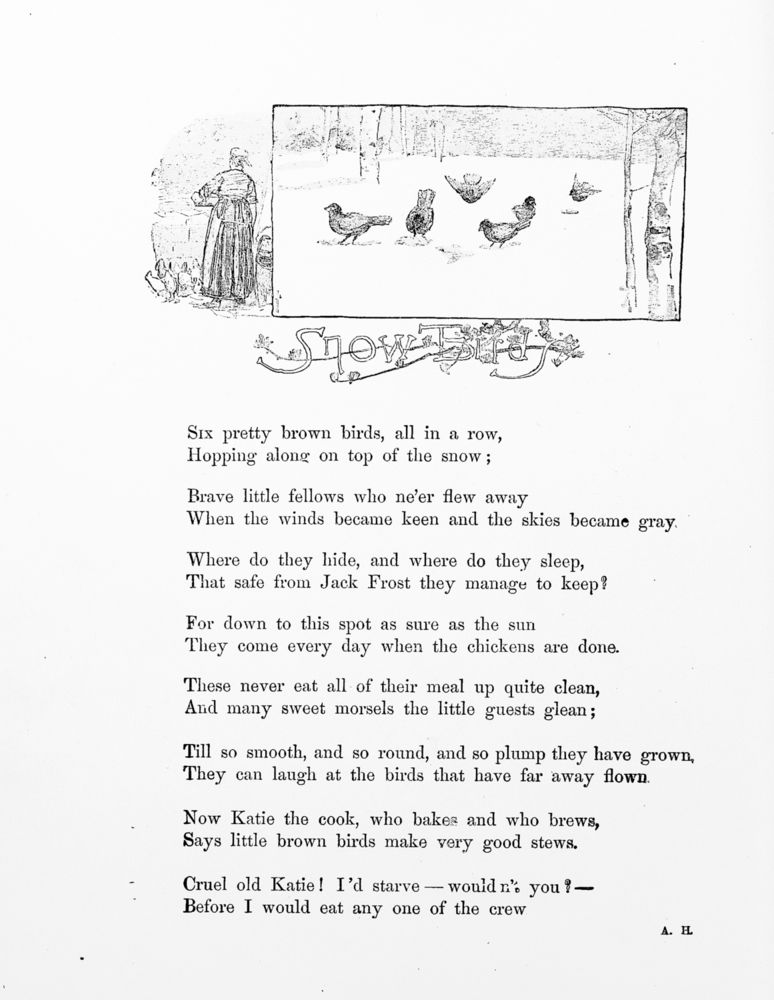 Snow Birds
Six pretty brown birds, all in a row,
Hopping along on top of the snow;
Brave little fellows who ne'er flew away
When the winds became keen and the skies became gray.
Where do they hide, and where do they sleep,
That safe from Jack Frost they manage to keep?
For down to this spot as sure as the sun
They come every day when the chickens are done.
These never eat all of their meal up quite clean,
And many sweet morsels the little guests glean;
Till so smooth, and so round, and so plump they have grown,
They can laugh at the birds that have far away flown.
Now Katie the cook, who bakes and who brews,
Says little brown birds make very good stews.
Cruel old Katie! I'd starve — wouldn't you? —
Before I would eat any one of the crew
A. H.